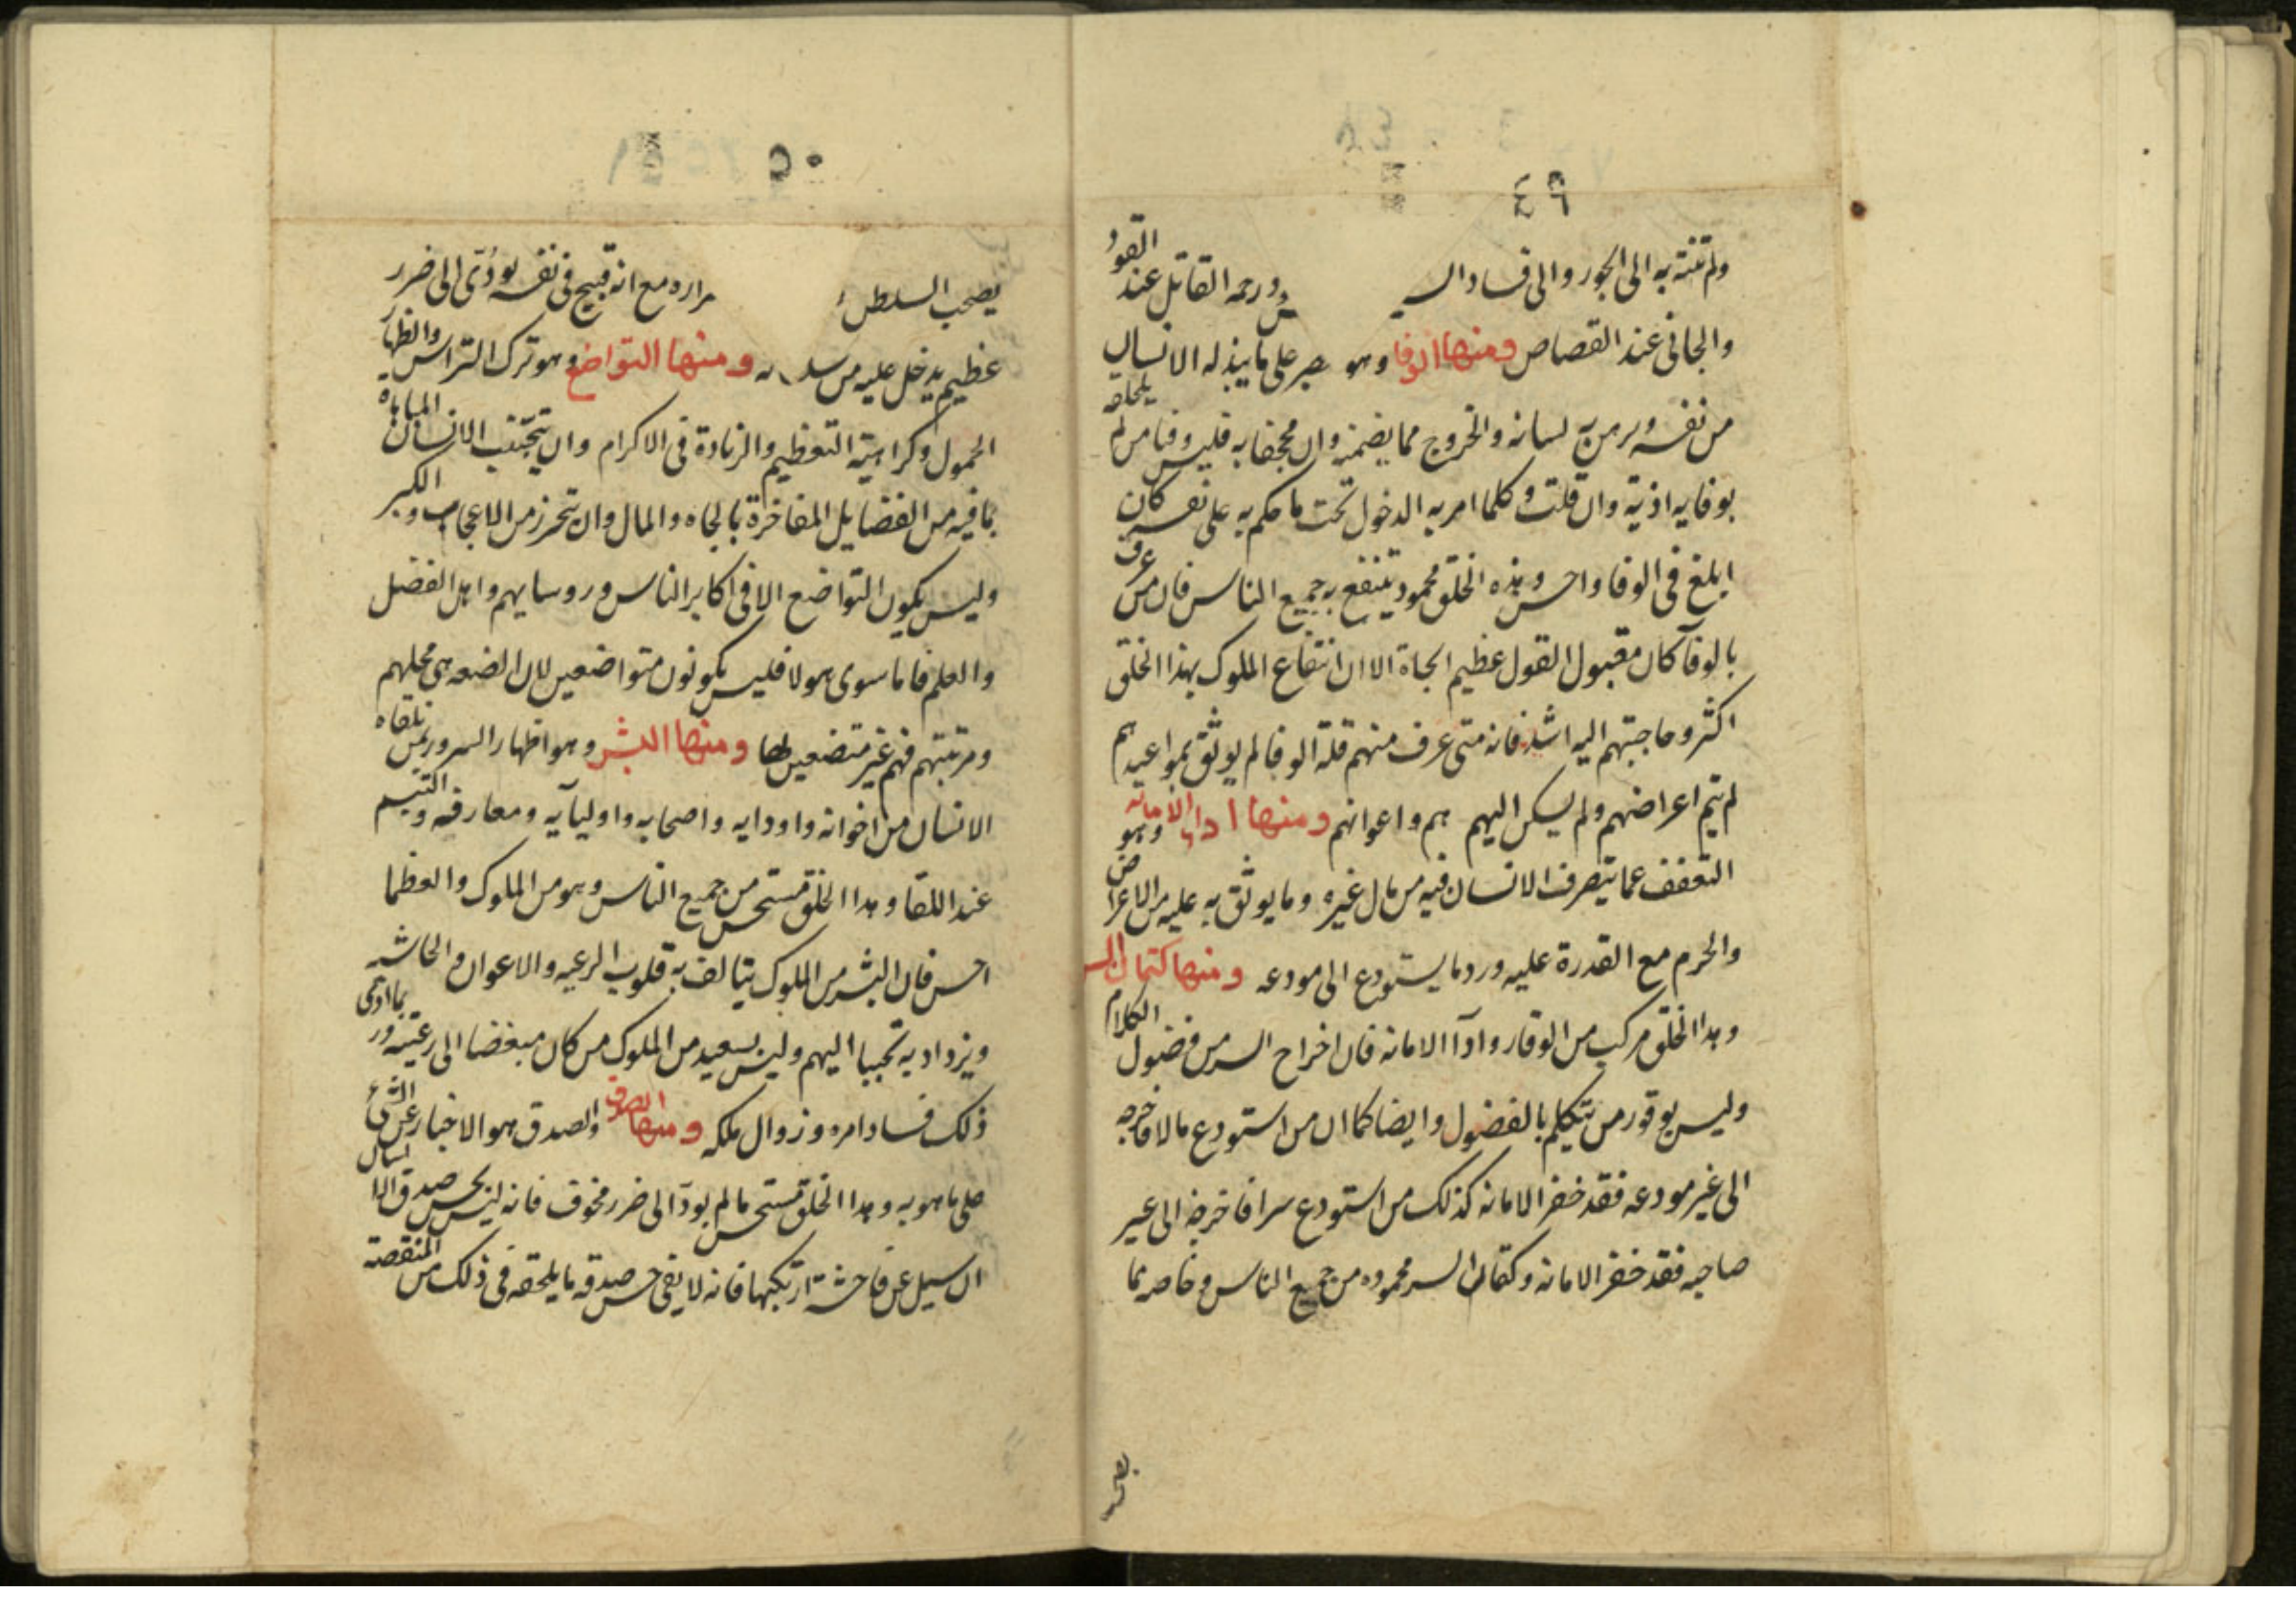 ٤٩
ولم تنته به الى الجور والى فساد الس ورحمه القاتل عند القود
والجانى عند القصاص ومنها الوفا وهو صبر على ما يبذله الانسان
من نفسه ويرهن به لسانه والخروج مما يضمنه وان مجحفا به فليس وفيا من لم يلحقه
بوفايه اذية وان قلت وكلما امر به الدخول تحت ما حكم به على نفسه كان
ابلغ فى الوفا واحسن وهذه الخلق محمود ينتفع به جميع الناس فان من عرف
بالوفآ كان مقبول القول عظيم الجاة الا ان انتفاع الملوك بهذا الخلق
اكثر وحاجتهم اليه اشد فانه متى عرف منهم قلة الوفا لم يوثق بمواعيدهم
لم يتم اعراضهم ولم يسكن اليهم هم واعوانهم ومنها ادا الامانه وهو
التعفف عما يتصرف الانسان فيه من مال غيره وما يوثق به عليه من الاعراض
والحرم مع القدرة عليه ورد ما يستودع الى مودعه ومنها كتمان السر
وهدا الخلق مركب من الوقار وادآ الامانه فان اخراج السر من فضول الكلام
وليس بوقور من تتكلم بالفضول وايضا كما ان من استودع مالا فاخرجه
الى غير مودعه فقد خفر الامانه كذلك من استودع سرا فاخرجه الى غير
صاحبه فقد خفر الامانه وكتمان السر محموده من جميع الناس وخاصه بما
يصحب
٥٠
يصحب السلطن مراره مع انه قبيح فى نفسه يودى الى ضرر
عظيم يدخل عليه من سلـ ـه ومنها التواضع وهو ترك التراس واظهار
الخمول وكراهية التعظيم والزيادة فى الاكرام وان يتجنب الانسان المباهاه
بما فيه من الفضايل المفاخرة بالجاه والمال وان يتحرز من الاعجاب والكبر
وليس يكون التواضع الا فى اكابر الناس وروسايهم واهل الفضل
والعلم فاما سوى هولا فليس يكونون متواضعين لان الضعه هى محلهم
ومرتبتهم فهم غير متضعين لها ومنها البشر وهو اظهار السرور بمن تلقاه
الانسان من اخوانه واودايه واصحابه واوليآيه ومعارفه والتبسم
عند اللقا وهدا الخلق مستحسن من جميع الناس وهو من الملوك والعظما
احسن فان البشر من الملوك يتالف به قلوب الرعيه والاعوان والحاشيه
ويزداد به تحببا اليهم وليس بسعيد من الملوك من كان مبغضا الى رعيته وربما ادى
ذلك فساد امره وزوال ملكه ومنها الصدق والصدق هو الاخبار عن الشئ
على ما هو به وهدا الخلق مستحسن ما لم يودآ الى ضرر مخوف فانه ليس يحسن صدق الانسان
ان سيل عن فاحشة ارتكبها فانه لا يفى حسن صدقه ما يلحقه فى ذلك من المنقصة